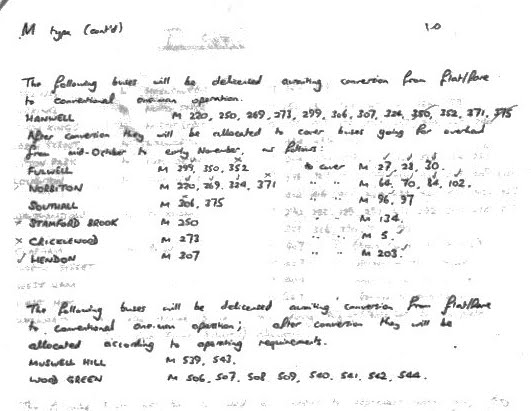 M type (cont'd) 10
The following buses will be delicensed awaiting conversion from flat/fare
to conventional one-man operation.
HANWELL M 220, 250, 269, 273, 299, 306, 307, 324, 350, 352, 371, 375
After conversion they will be allocated to cover buses going for overhaul
from mid-October to early November, as follows:
FULWELL M 299, 350, 352 to cover M 27, 28, 30.
NORBITON M 220, 269, 324, 371 " " M 64, 70, 84, 102.
SOUTHALL M 306, 375 " " M 96, 97
STAMFORD BROOK M 250 " " M 134.
× CRICKLEWOOD M 273 " " M 5.
✓ HENDON M 307 " " M 203.
The following buses will be delicensed awaiting conversion from flat/fare
to conventional one-man operation; after conversion they will be
allocated according to operating requirements.
MUSWELL HILL M 539, 543.
WOOD GREEN M 506, 507, 508, 509, 540, 541, 542, 544.